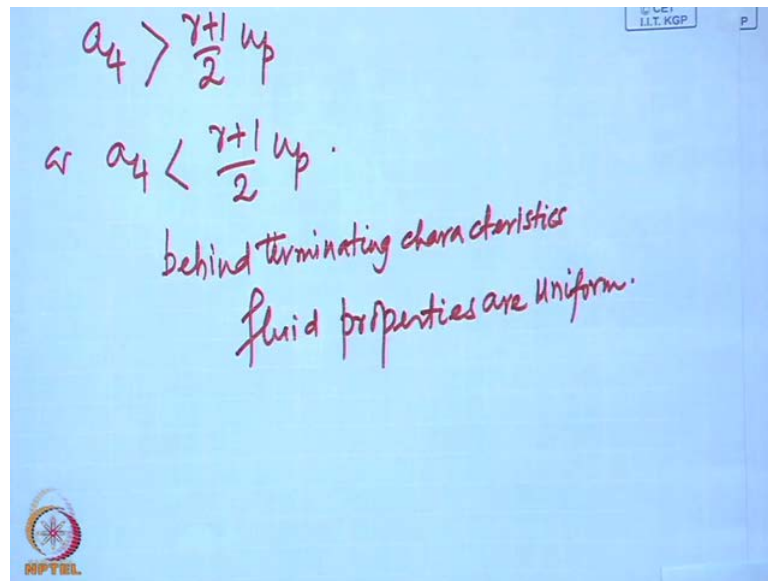 © CET
I.I.T. KGP
P
a₄ > γ+1/2 up
or a₄ < γ+1/2 up.
behind terminating characteristics
fluid properties are uniform.
NPTEL